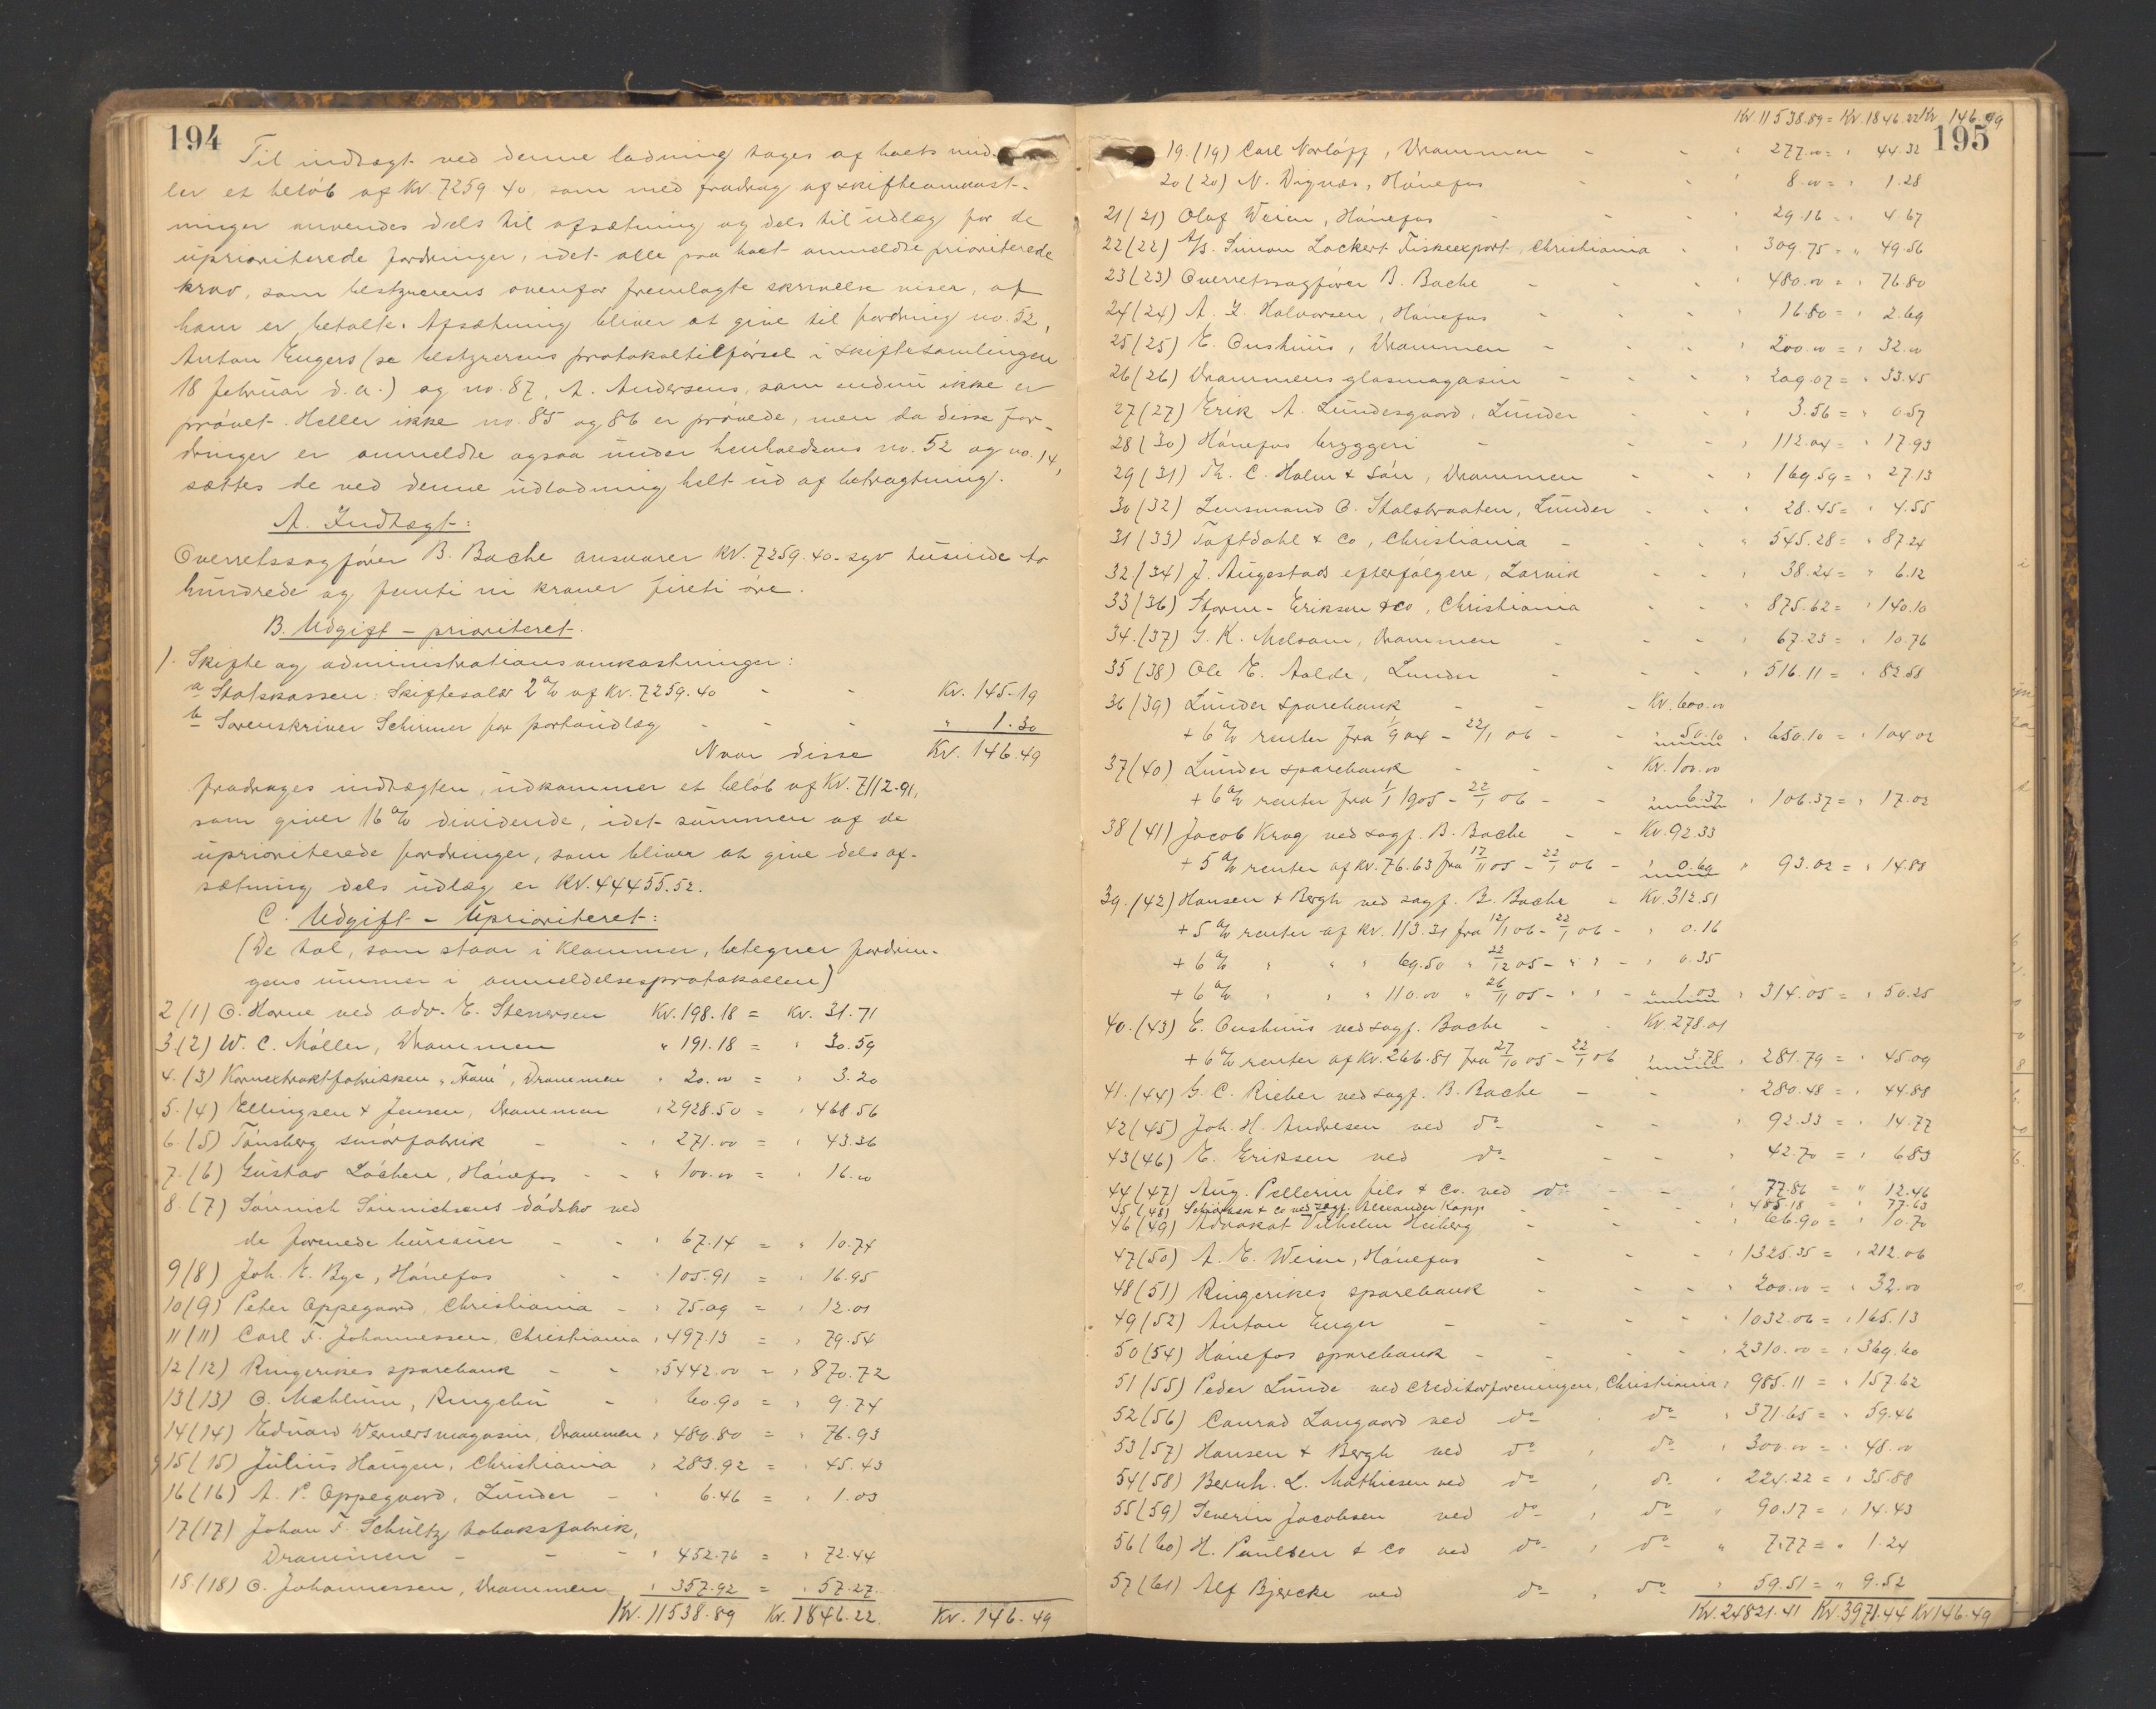 194
Til indtægt ved denne ladning tages af boets mid-
ler et beløb af Kr. 7259.40, som med fradrag af skifteomkost-
ninger anvendes dels til afsætning og dels til udlæg for de
uprioriterede fordringer, idet alle paa boet anmeldte prioriterede
krav, som bestyrerens ovenfor fremlagte skrivelse viser, af
ham er betalte. Afsætning bliver at give til fordring no. 52,
Anton Engers (se bestyrerens protokoltilførsel i skiftesamlingen
18 februar d.a.) og no. 87, A. Andersens, som endnu ikke er
prøvet. Heller ikke no. 85 og 86 er prøvede, men da disse for-
dringer er anmeldte ogsaa under henholdsvis no. 52 og no. 14,
sættes de ved denne udlodning helt ud af betragtning.
A. Indtægt:
Overretssagfører B. Bache ansvarer Kr. 7259.40 - syv tusinde to
hundrede og femti ni kroner fireti øre.
B. Udgift - prioriteret.
1. Skifte og administrationsomkostninger:
a Statskassen: Skiftesalær 2 % af Kr. 7259.40 - - Kr. 145.19
b Sorenskriver Schirmer for portoudlæg - - - " 1.30
Naar disse Kr. 146.49
fradrages indtægten, udkommer et beløb af Kr. 7112.91,
som giver 16 % dividende, idet summen af de
uprioriterede fordringer, som bliver at give dels af-
sætning dels udlæg er Kr. 44455.52.
C. Udgift - Uprioriteret:
(De tal, som staar i Klammer, betegner fordrin-
gens nummer i anmeldelsesprotokollen)
2 (1) O. Horne ved adv. E. Stenersen Kr. 198.18 = Kr. 31.71
3. (2) W. C. Møller, Drammen " 191.18 = " 30.59
4. (3) Kornextraktfabrikken "Fram", Drammen " 20.00 = " 3.20
5. (4) Ellingsen & Jensen, Drammen " 2928.50 = " 468.56
6 (5) Tønsberg smørfabrik - - " 271.00 = " 43.36
7. (6) Gustav Løchen, Hønefos - - " 100.00 = " 16.00
8. (7) Sønnich Sønnichsens dødsbo ved
de forenede bureauer - - " 67.14 = " 10.74
9 (8) Joh. E. Bye, Hønefos - - " 105.91 = " 16.95
10 (9) Peter Oppegaard, Christiania - " 75.09 = " 12.01
11 (11) Carl F. Johannessen, Christiania " 497.13 = " 79.54
12 (12) Ringerikes sparebank - - " 5442.00 = " 870.72
13 (13) O. Mæhlum, Ringebu - " 60.90 = " 9.74
14 (14) Eduard Werners magasin, Drammen " 480.80 = " 76.93
15 (15) Julius Haugen, Christiania " 283.92 = " 45.43
16 (16) A. P. Oppegaard, Lunder - " 6.46 = " 1.03
17 (17) Johan F. Schultz tobaksfabrik,
Drammen - - - " 452.76 = " 72.44
18. (18) O. Johannessen, Drammen " 357.92 = " 57.27
Kr. 11538.89 Kr. 1846.22. Kr. 146.49
Kr. 11538.89 = Kr. 1846.22 Kr. 146.49
195
19. (19) Carl Norløff, Drammen - - " 277.00 = " 44.32
20 (20) N. Vignæs, Hønefos - - " 8.00 = " 1.28
21 (21) Olaf Weien, Hønefos - - - " 29.16 = " 4.67
22 (22) A/S. Simon Lockert Fiskeexport, Christiania - " 309.75 = " 49.56
23 (23) Overretssagfører B. Bache - - - " 480.00 = " 76.80
24 (24) A. F. Halvorsen, Hønefos - - - " 16.80 = " 2.69
25 (25) E. Cushius, Drammen - - - " 200.00 = " 32.00
26 (26) Drammens glasmagasin - - - " 209.07 = " 33.45
27 (27) Erik A. Lundesgaard, Lunder - - " 3.56 = " 0.57
28 (30) Hønefos bryggeri - - - " 112.04 = " 17.93
29 (31) Th. C. Holm & Søn, Drammen - - " 169.59 = " 27.13
30 (32) Lensmand O. Stalsbraaten, Lunder - - " 28.45 = " 4.55
31 (33) Toftdahl & Co, Christiania - - - " 545.28 = " 87.24
32 (34) J. Augestads efterfølgere, Larvik - - " 38.24 = " 6.12
33 (36) Storm-Eriksen & Co, Christiania - - " 875.62 = " 140.10
34. (37) G. K. Melsom, Drammen - - - " 67.23 = " 10.76
35 (38) Ole E. Aalde, Lunder - - - " 516.11 = " 82.58
36 (39) Lunder sparebank - - - Kr. 600.00
+ 6 % renter fra 1/9 04 - 22/1 06 - - " 50.10 " 650.10 = " 104.02
37 (40) Lunder sparebank - - - Kr. 100.00
+ 6 % renter fra 1/1 1905 - 22/1 06 - - " 6.37 " 106.37 = " 17.02
38 (41) Jacob Krog ved sagf. B. Bache - - Kr. 92.33
+ 5 % renter af Kr. 76.63 fra 17/11 05 - 22/1 06 - " 0.69 " 93.02 = " 14.88
39. (42) Hansen & Bergh ved sagf. B. Bache - Kr. 312.51
+ 5 % renter af Kr. 113.31 fra 12/1 06 - 22/1 06 - " 0.16
+ 6 % " " " 69.50 " 22/12 05 - " " - " 0.35
+ 6 % " " " 110.00 " 26/11 05 - " " - " 1.03 " 314.05 = " 50.25
40. (43) E. Cushius ved sagf. Bache - - Kr. 278.01
+ 6 % renter af Kr. 266.81 fra 27/10 05 - 22/1 06 " 3.78 " 281.79 = " 45.09
41. (44) G. C. Rieber ved sagf. B. Bache - - " 280.48 = " 44.88
42 (45) Joh. H. Andresen ved do - - " 92.33 = " 14.77
43 (46) E. Eriksen ved do - - " 42.70 = " 6.83
44 (47) Aug. Pellerin fils & Co. ved do - - " 77.86 = " 12.46
45 (48) & Co ved sagf. Alexander Kapp - - " 485.18 = " 77.63
46 (49) Advokat Vilhelm Heiberg - - " 66.90 = " 10.70
47 (50) A. E. Weien, Hønefos - - - " 1325.35 = " 212.06
48 (51) Ringerikes sparebank - - - " 200.00 = " 32.00
49 (52) Anton Enger - - - " 1032.06 = " 165.13
50 (54) Hønefos sparebank - - - " 2310.00 = " 369.60
51 (55) Peder Lunde ved Creditorforeningen, Christiania " 985.11 = " 157.62
52 (56) Conrad Langaard ved do , do " 371.65 = " 59.46
53 (57) Hansen & Bergh ved do , do " 300.00 = " 48.00
54 (58) Bernh. L. Mathiesen ved do , do " 224.22 = " 35.88
55 (59) Severin Jacobsen ved do , do " 90.17 = " 14.43
56 (60) H. Paulsen & Co ved do , do " 7.77 = " 1.24
57 (61) Alf Bjercke ved do , do " 59.51 = " 9.52
Kr. 24821.41 Kr. 3971.44 Kr. 146.49